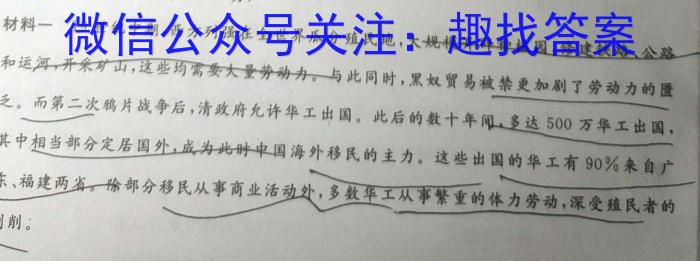 微信公众号关注：趣找答案
材料一
公路
和运河,开采矿山,这些均需要大量劳动力。与此同时,黑奴贸易被禁更加剧了劳动力的匮
乏。而第二次鸦片战争后,清政府允许华工出国。此后的数十年间,多达500万华工出国,
其中相当部分定居国外,成为此时中国海外移民的主力。这些出国的华工有90%来自广
东、福建两省。除部分移民从事商业活动外,多数华工从事繁重的体力劳动,深受殖民者的
削。